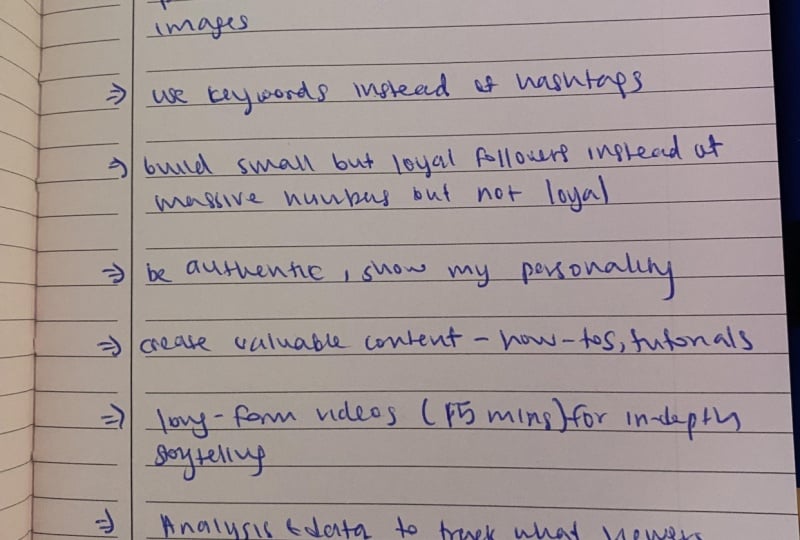 images
⇒ use keywords instead of hashtags
⇒ build small but loyal followers instead of
massive numbers but not loyal
⇒ be authentic, show my personality
⇒ create valuable content - how-tos, tutorials
⇒ long-form videos (15 mins) for in-depth
storytelling
⇒ Analysis & data to track what viewers